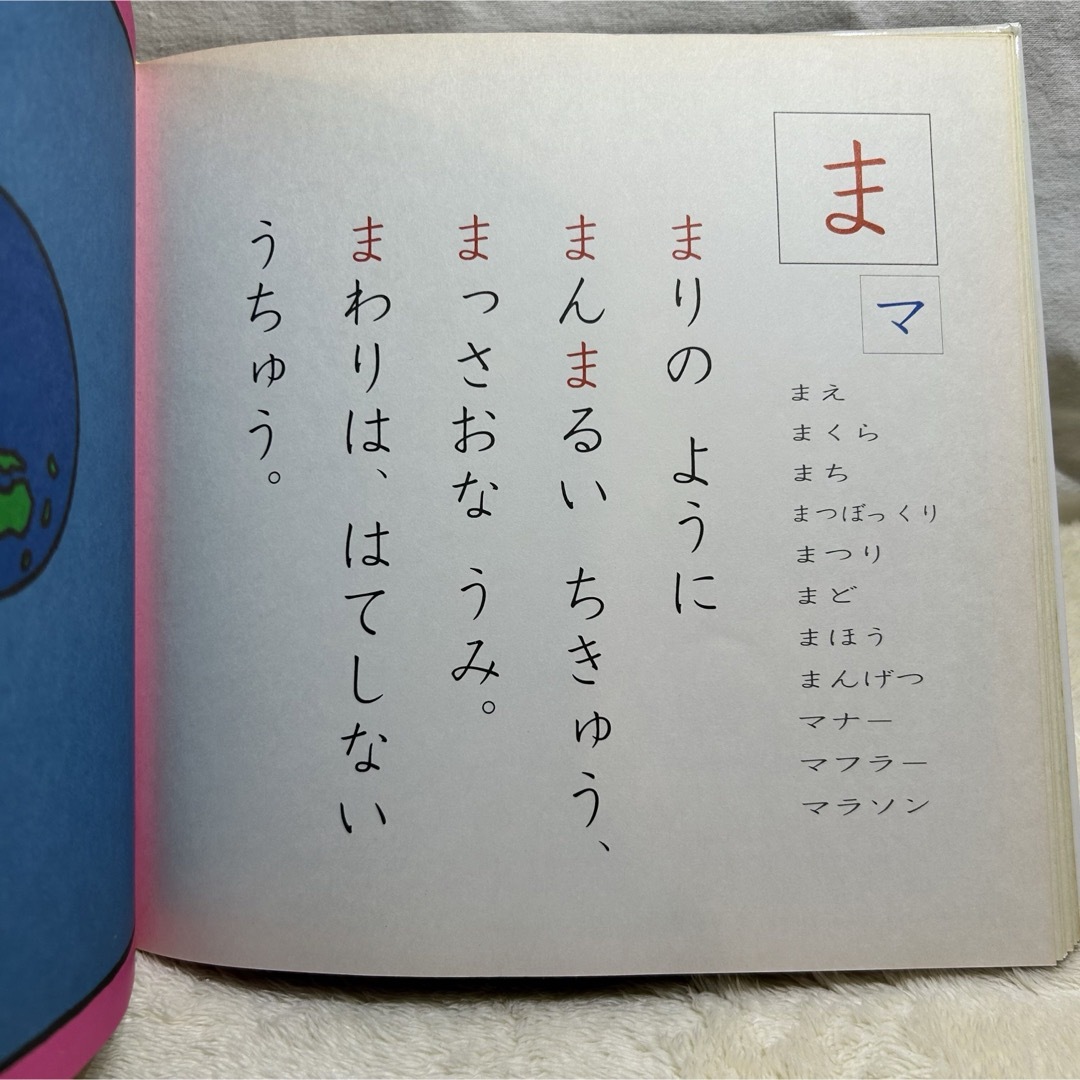 ま
マ
まえ
まくら
まち
まつぼっくり
まつり
まど
まほう
まんげつ
マナー
マフラー
マラソン
まりの ように
まんまるい ちきゅう、
まっさおな うみ。
まわりは、はてしない
うちゅう。